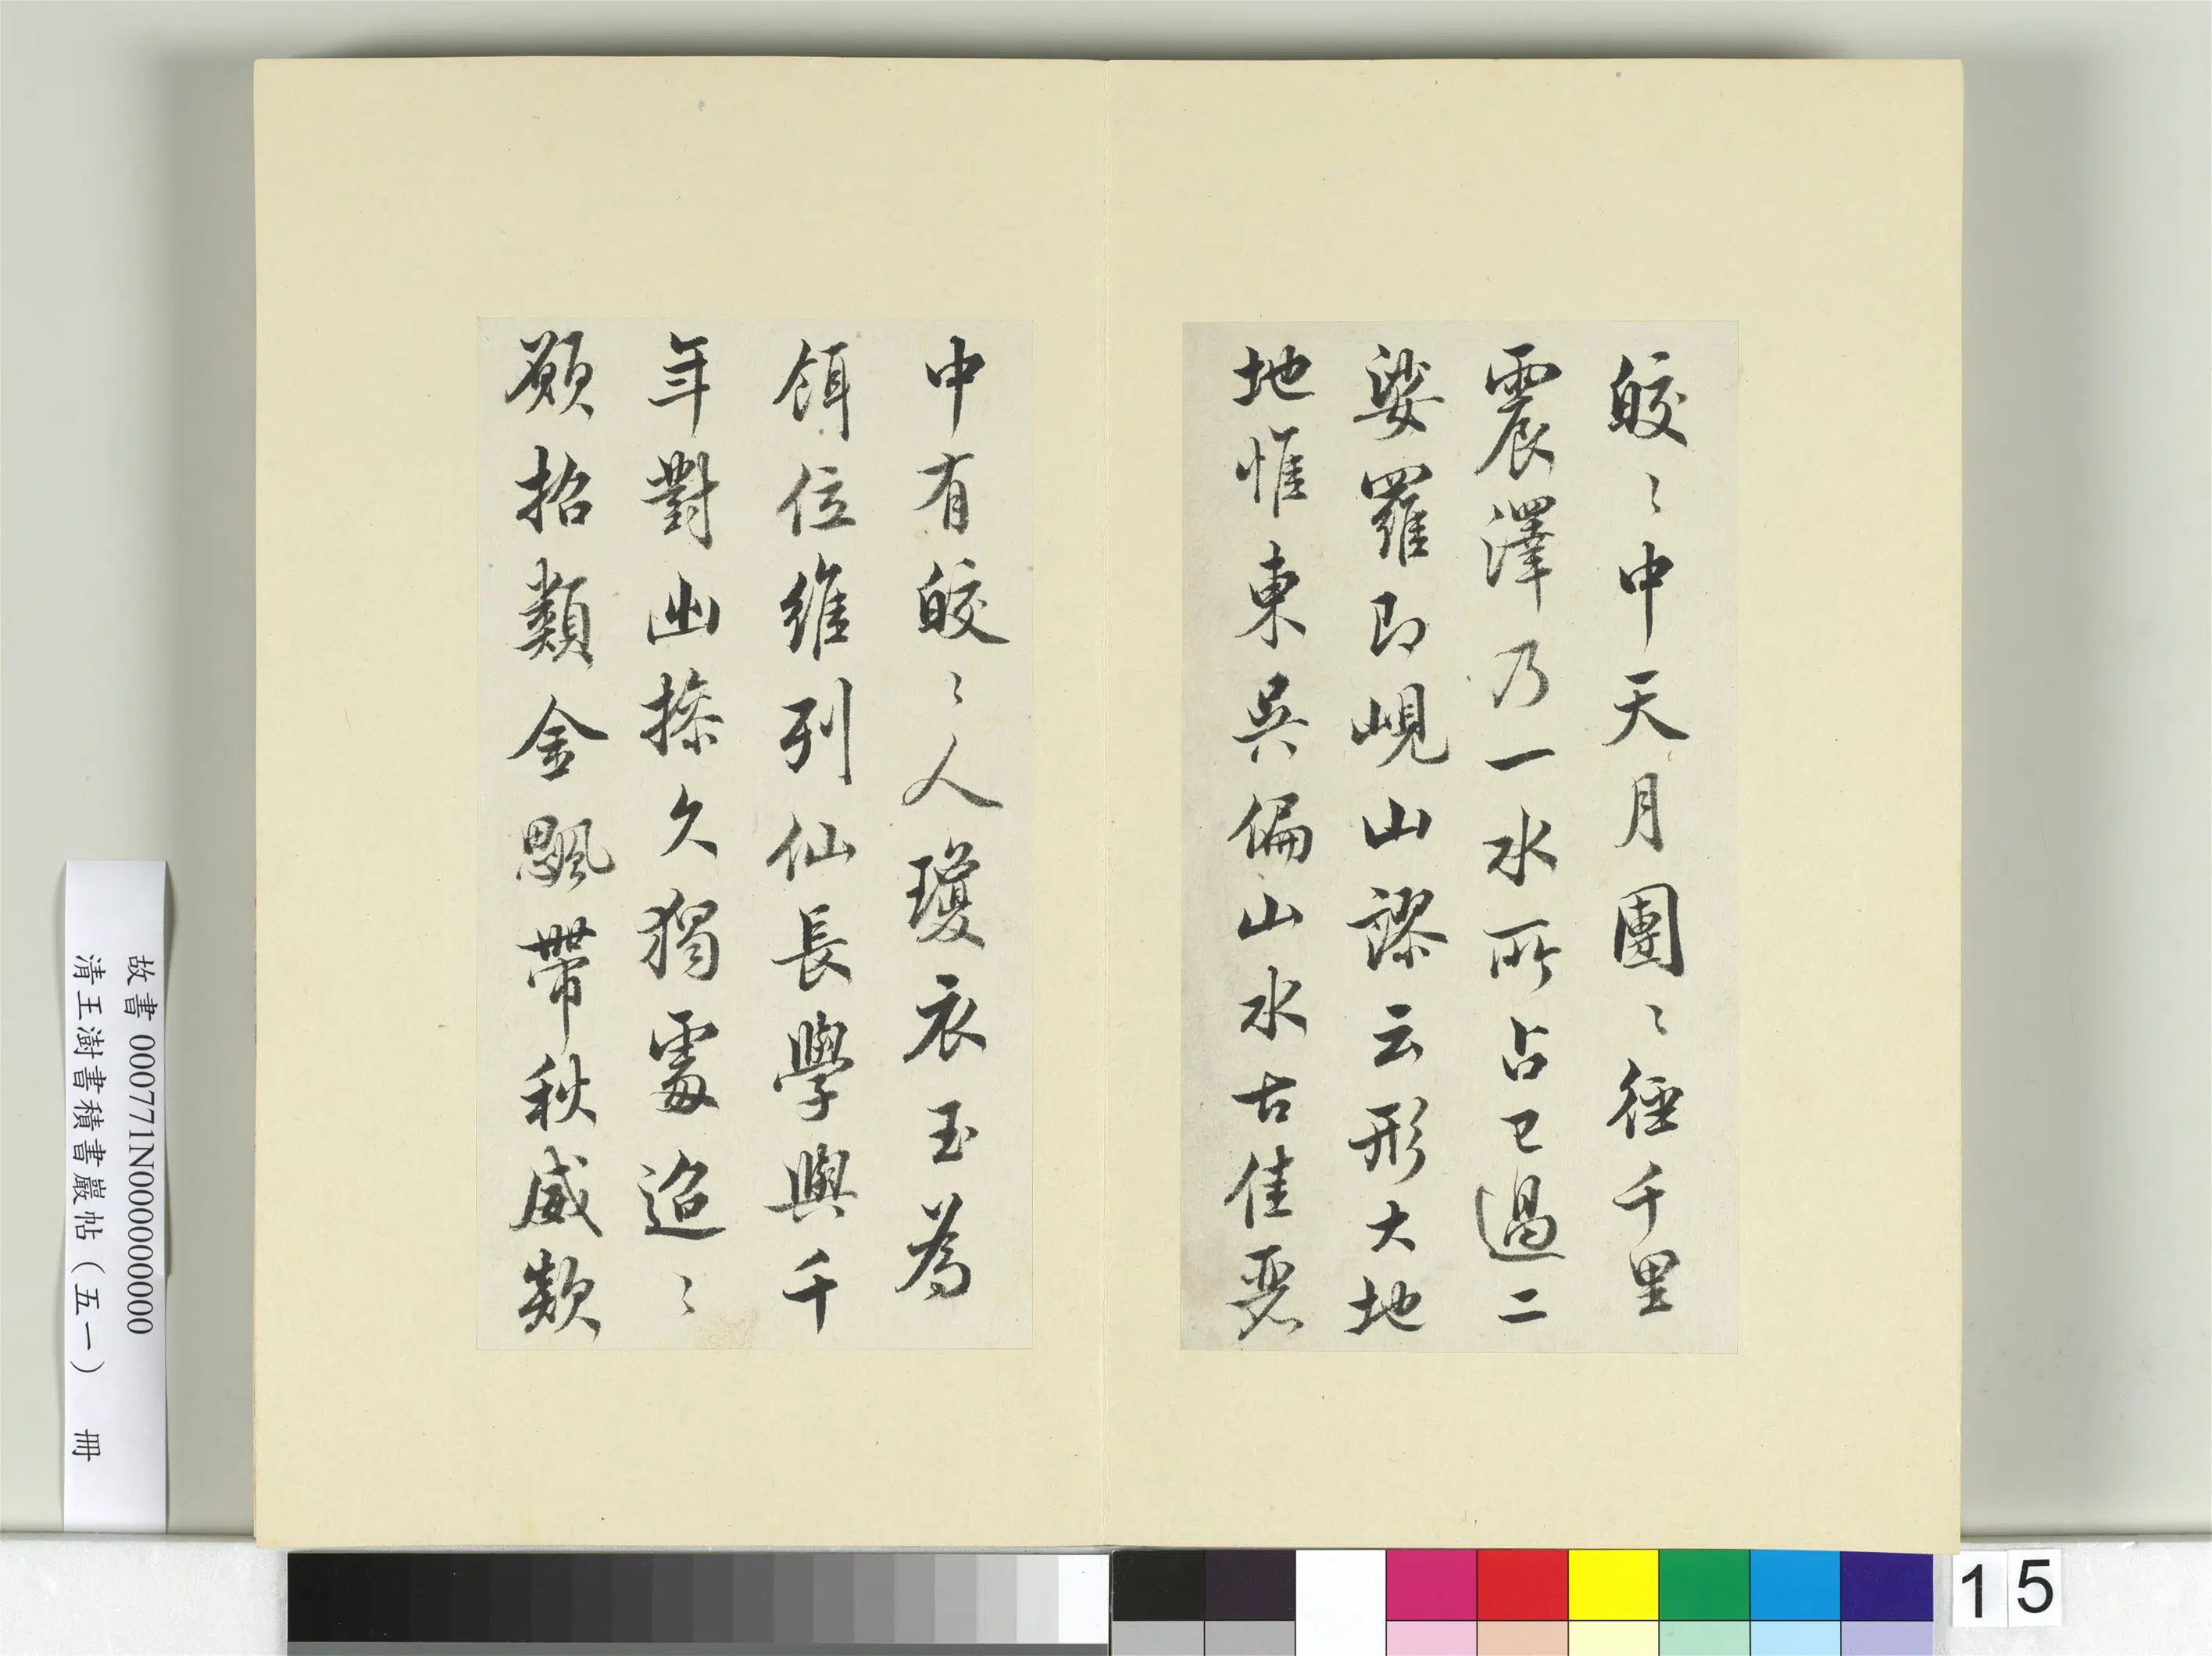 皎〻中天月團〻徑千里
震澤乃一水所占已過二
娑羅即峴山謬云形大地
地惟東吳偏山水古佳麗
中有皎〻人瓊衣玉為
餌位維列仙長學與千
年對幽操久獨處迢〻
願招類金飈帶秋威欻
故書 000771N000000000
清王澍書積書巖帖(五一) 冊
15